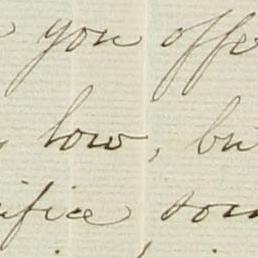 you offe
low, bu
ifice som